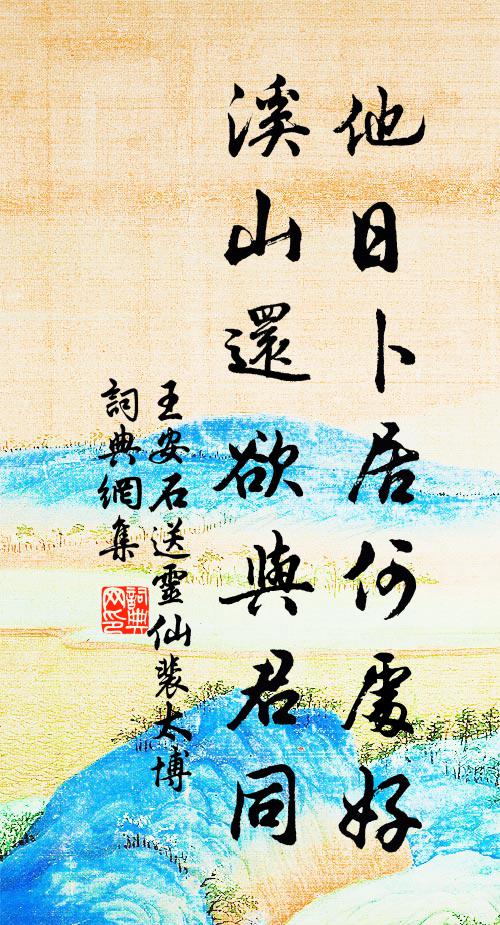 他日卜居何處好
溪山還欲與君同
王安石送靈仙裴太博
詞典網集
詞典網印